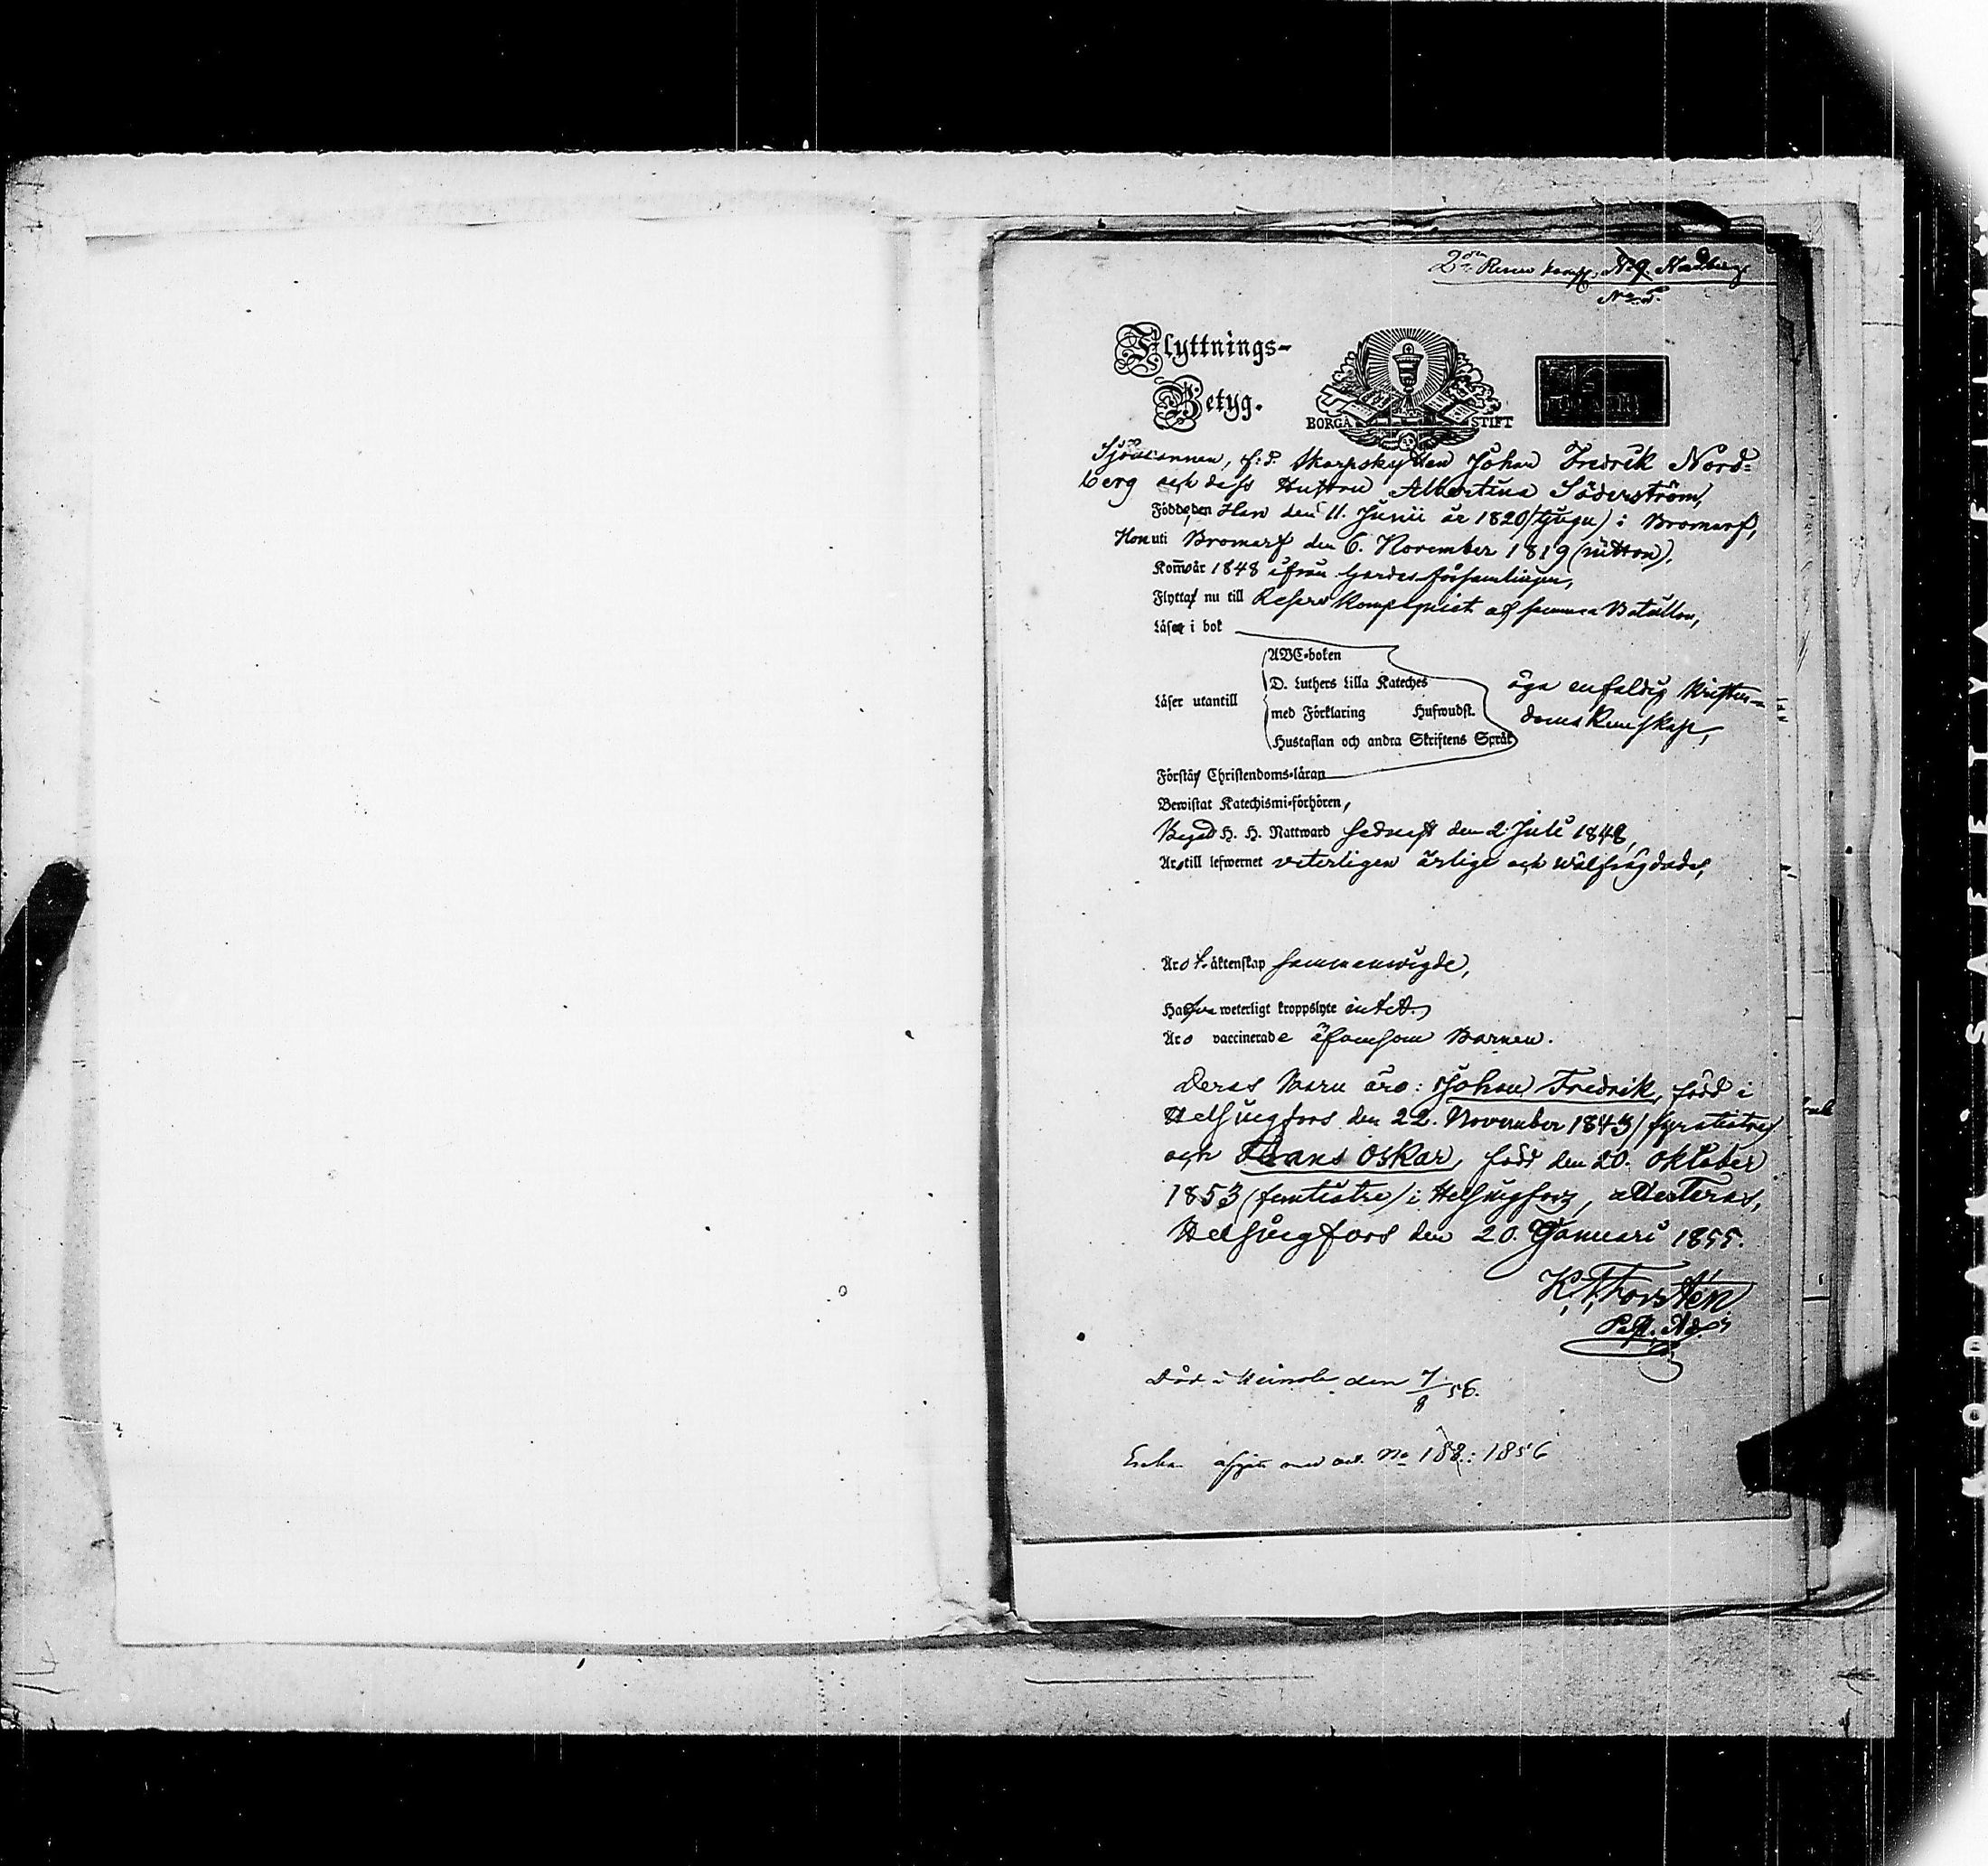 2dra Reserv komp. No 9 Nordberg
No 5.
Flyttnings-
Betyg.
BORGÅ STIFT
Sjömannen, f: d. Skarpskytten Johan Fredrik Nord-
berg och dess Hustru Albertina Söderström,
Födde, den Han den 11. Junii år 1820 (tjugu) i Bromarf,
Hon uti Bromarf den 6. November 1819 (nitton).
Kom̄o år 1848 ifrån Gardes församlingen,
Flytta nu till Reserv Kompagniet af samma Bataillon,
Läsa i bok
ABC-boken
D. Luthers Lilla Kateches
äga enfaldig Kristen-
Läser utantill
med Förklaring Hufwudst.
doms Kunskap,
Hustaflan och andra Skriftens Språk
Förstå Christendoms-läran
Bewistat Katechismi-förhören,
Begad H. H. Nattward sednast den 2 Juli 1848,
Äro till lefwernet veterligen ärlige och wälfrägdade,
Äro t. äktenskap sammanvigde,
Hafva weterligt kroppslyte intet.
Äro vaccinerade äfvensom Barnen.
Deras Barn äro: Johan Fredrik, född i
Helsingfors den 22. November 1843 (fyratiotre)
och Frans Oskar, född den 20. Oktober
1853 (femtiotre) i Helsingfors, attesteras,
Helsingfors den 20. Januari 1855.
K. Forstén
Past. Adj.
Död i Heinola den 7/8 56.
Enkan afgått med att. No 188: 1856